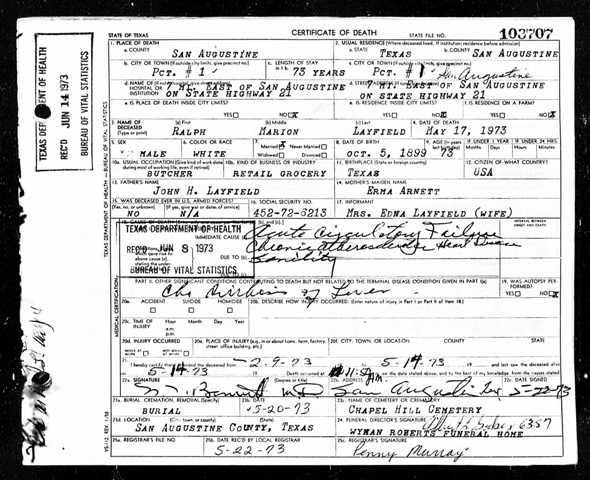 STATE OF TEXAS CERTIFICATE OF DEATH STATE FILE NO. 103707
TEXAS DEPT. OF HEALTH
REC'D JUN 14 1973
BUREAU OF VITAL STATISTICS
1. PLACE OF DEATH 2. USUAL RESIDENCE (Where deceased lived. If institution: residence before admission)
a. COUNTY SAN AUGUSTINE a. STATE TEXAS b. COUNTY SAN AUGUSTINE
b. CITY OR TOWN (If outside city limits, give precinct no.) c. LENGTH OF STAY c. CITY OR TOWN (If outside city limits, give precinct no.)
PCT. # 1 73 YEARS PCT. # 1 San Augustine
d. NAME OF HOSPITAL OR INSTITUTION 7 MI. EAST OF SAN AUGUSTINE 7 MI. EAST OF SAN AUGUSTINE
ON STATE HIGHWAY 21 ON STATE HIGHWAY 21
e. IS PLACE OF DEATH INSIDE CITY LIMITS? YES NO X e. IS RESIDENCE INSIDE CITY LIMITS? YES NO X f. IS RESIDENCE ON A FARM? YES NO X
3. NAME OF DECEASED (Type or print) (a) First (b) Middle (c) Last 4. DATE OF DEATH
RALPH MARION LAYFIELD MAY 17, 1973
5. SEX 6. COLOR OR RACE 7. Married X Never Married Widowed Divorced 8. DATE OF BIRTH 9. AGE
MALE WHITE OCT. 5, 1899 73
10a. USUAL OCCUPATION 10b. KIND OF BUSINESS OR INDUSTRY 11. BIRTHPLACE (State or foreign country) 12. CITIZEN OF WHAT COUNTRY?
BUTCHER RETAIL GROCERY TEXAS USA
13. FATHER'S NAME 14. MOTHER'S MAIDEN NAME
JOHN H. LAYFIELD ERMA ARNETT
15. WAS DECEASED EVER IN U.S. ARMED FORCES? 16. SOCIAL SECURITY NO. 17. INFORMANT
NO N/A 452-72-6213 MRS. EDNA LAYFIELD (WIFE)
18. CAUSE OF DEATH
TEXAS DEPARTMENT OF HEALTH
REC'D JUN 8 1973
BUREAU OF VITAL STATISTICS
IMMEDIATE CAUSE Acute Circulatory Failure
Chronic Heart Disease
DUE TO Senility
PART II. OTHER SIGNIFICANT CONDITIONS CONTRIBUTING TO DEATH BUT NOT RELATED TO THE TERMINAL DISEASE CONDITION GIVEN IN PART I(a) 19. WAS AUTOPSY PERFORMED? YES NO X
of Liver
20a. ACCIDENT SUICIDE HOMICIDE 20b. DESCRIBE HOW INJURY OCCURRED. (Enter nature of injury in Part I or Part II of item 18.)
20c. TIME OF INJURY Hour Month Day Year a.m. p.m.
20d. INJURY OCCURRED 20e. PLACE OF INJURY (e.g., in or about home, farm, factory, street, office building, etc.) 20f. CITY, TOWN, OR LOCATION COUNTY STATE
21. I hereby certify that I attended the deceased from 2-9-73 5-14-73
5-14-73 Death occurred at 11:50 A.M.
22a. SIGNATURE (Degree or title) 22b. ADDRESS 22c. DATE SIGNED
M.D. San Augustine, Tex 5-20-73
23a. BURIAL, CREMATION, REMOVAL (Specify) 23b. DATE 23c. NAME OF CEMETERY OR CREMATORY
BURIAL 5-20-73 CHAPEL HILL CEMETERY
23d. LOCATION (City, town, or county) (State) 24. FUNERAL DIRECTOR'S SIGNATURE 6357
SAN AUGUSTINE COUNTY, TEXAS WYMAN ROBERTS FUNERAL HOME
25a. REGISTRAR'S FILE NO. 25b. DATE REC'D BY LOCAL REGISTRAR 25c. REGISTRAR'S SIGNATURE
5-22-73 Penny Murray
MEDICAL CERTIFICATION